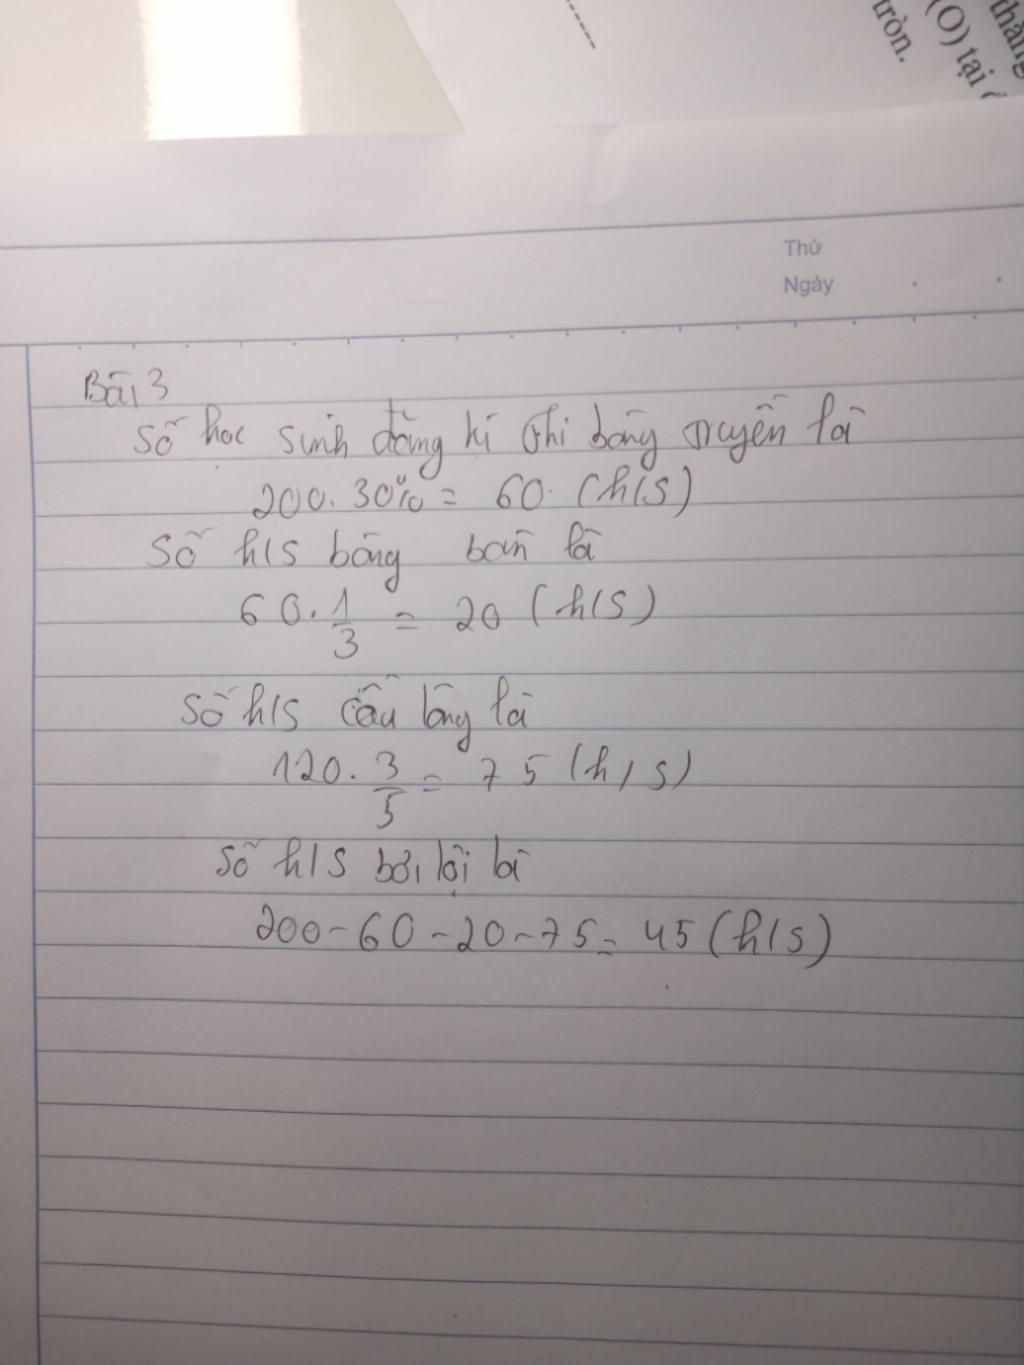 thẳng
(O) tại
tròn.
Thứ
Ngày
Bài 3
Số học sinh đăng kí thi bóng truyền là
200.30% = 60. (h/s)
Số h/s bóng bàn là
60. 1/3 = 20 (h/s)
Số h/s cầu lông là
120. 3/5 = 75 (h/s)
Số h/s bơi lội là
200-60-20-75= 45 (h/s)